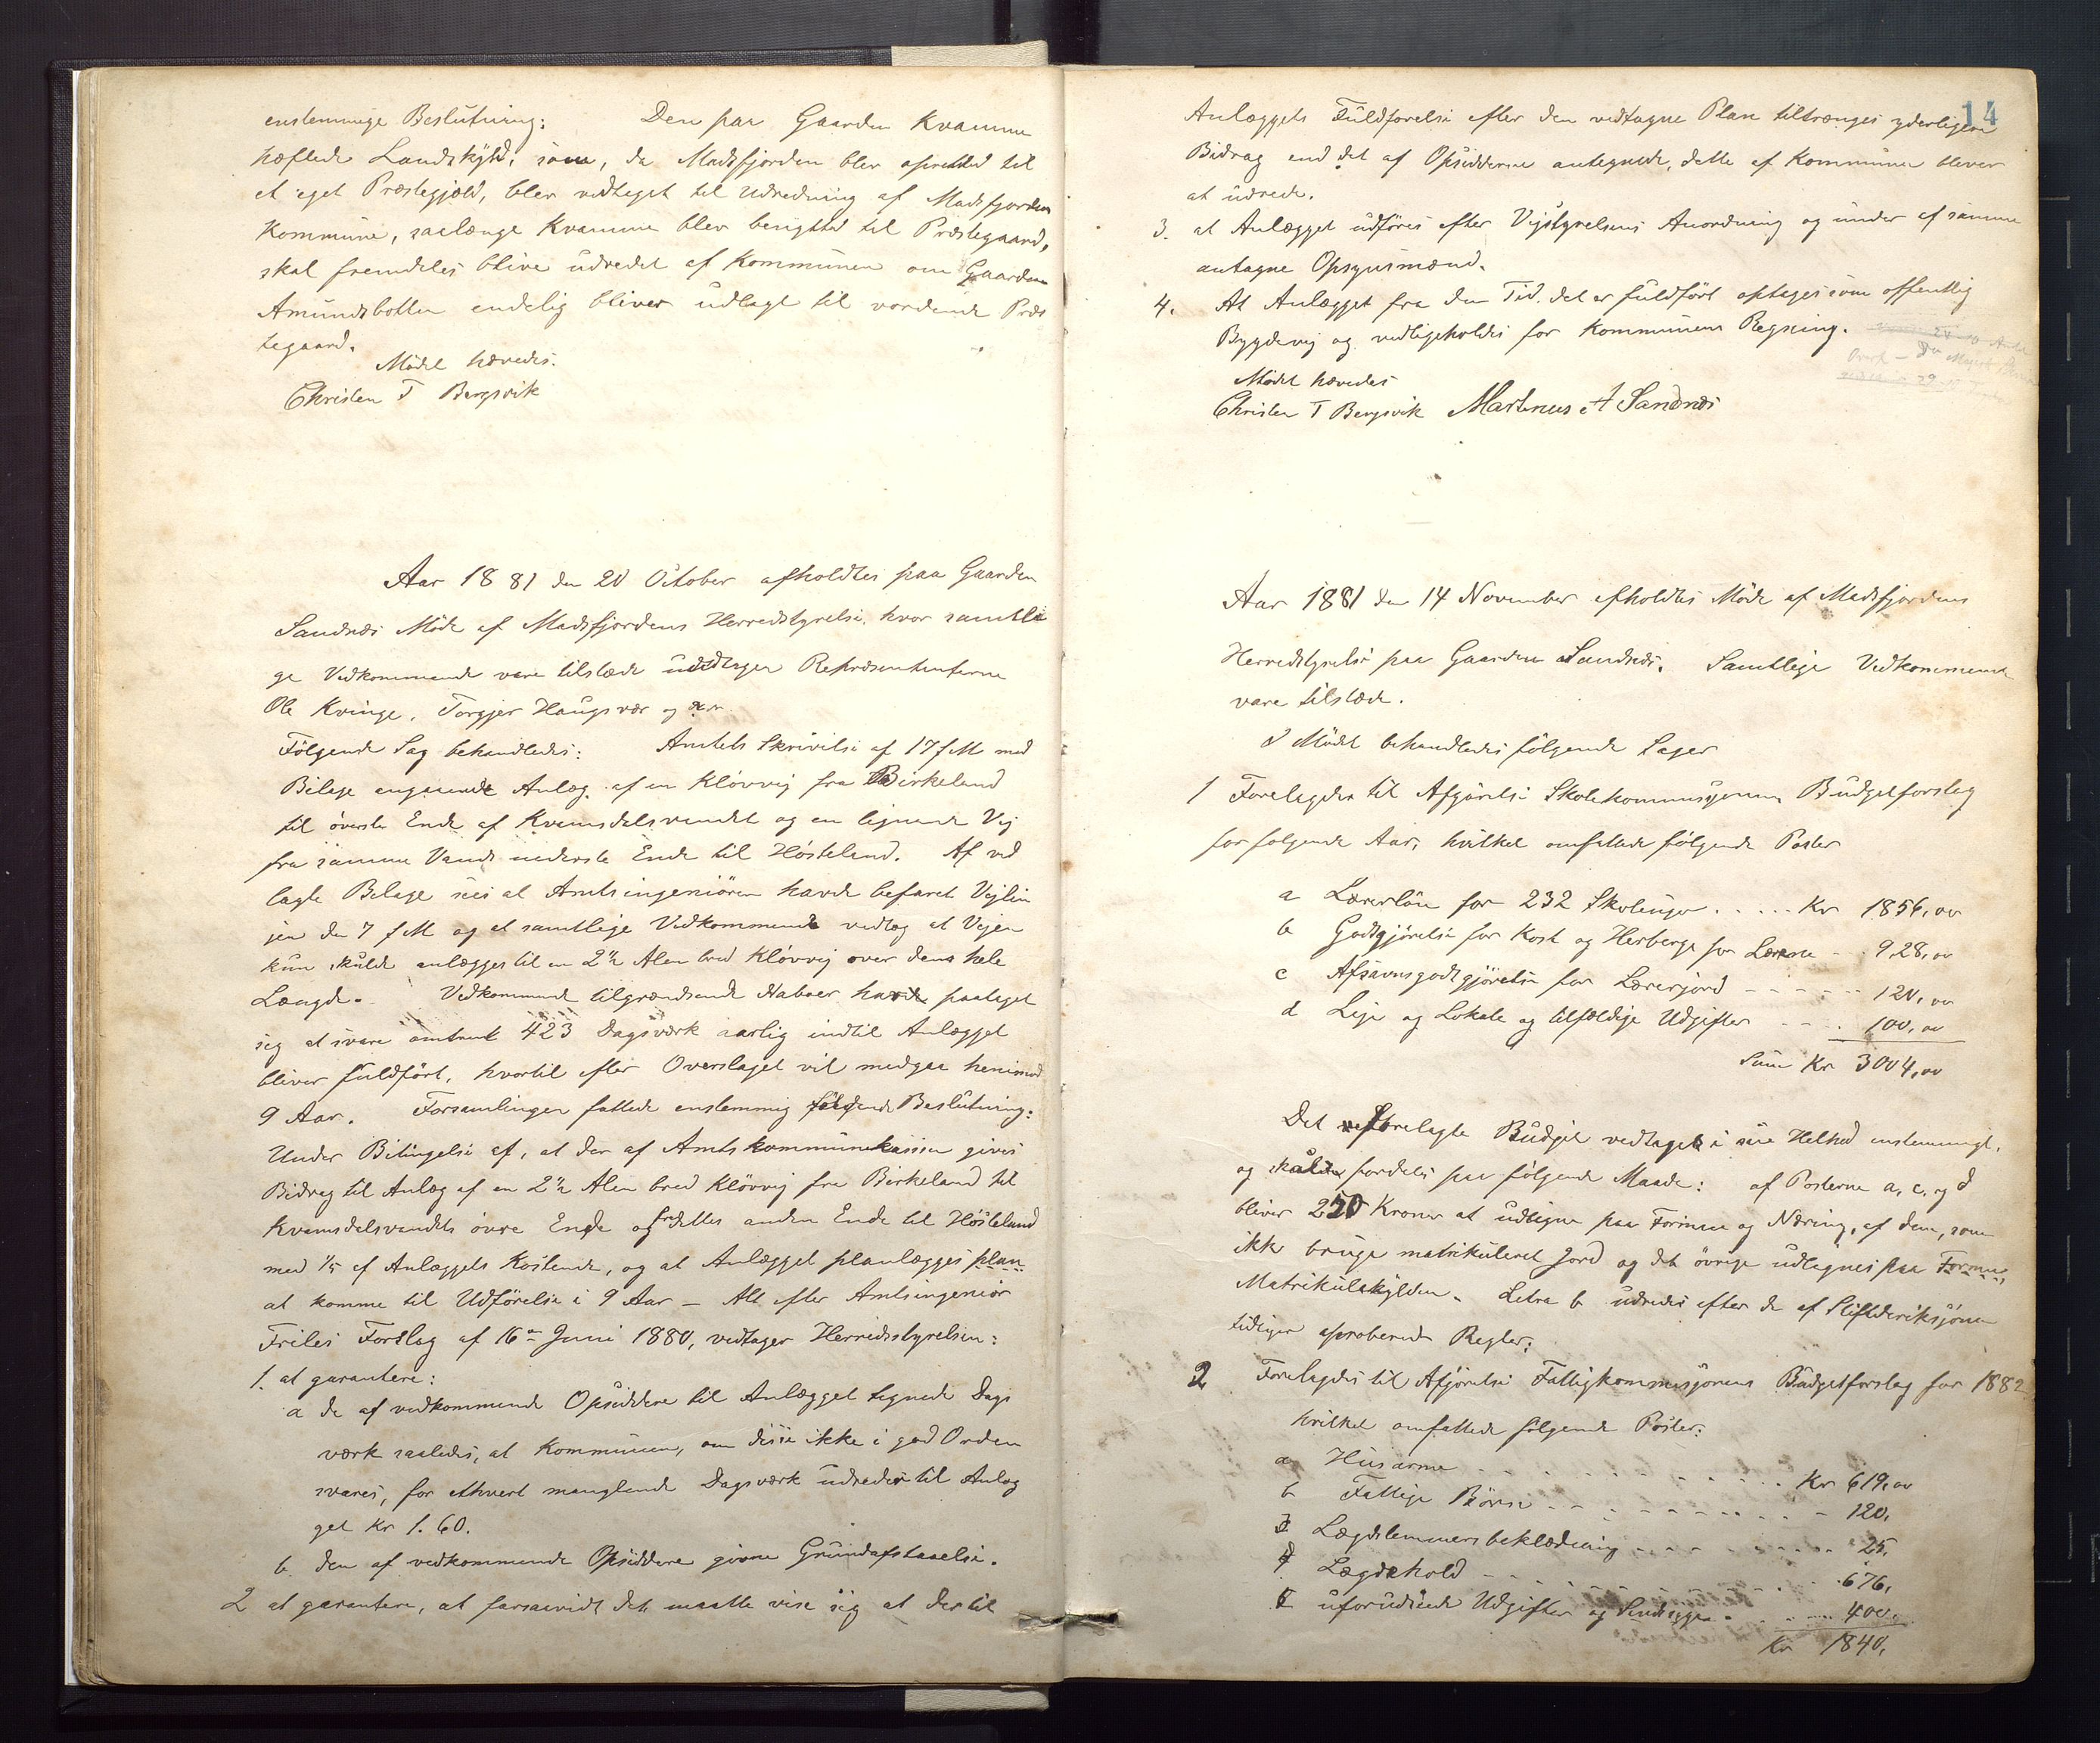 enstemmige Beslutning: Den paa Gaarden Kvamme
hæftede Landskyld, som, da Madsfjorden blev oprettet til
et eget Præstegjæld, blev vedtaget til Udredning af Madsfjorden
Kommune, saalænge Kvamme blev benyttet til Præstegaard,
skal fremdeles blive udredet af Kommunen om Gaarden
Amundsbotten endelig bliver udlagt til vordende Præs
tegaard.
Mødet hævedes.
Christen T Bergsvik
Aar 1881 den 20 October afholdtes paa Gaarden
Sandnæs Møde af Madsfjordens Herredstyrelse, hvor samtli
ge Vedkommende vare tilstæde undtagen Repræsentanterne
Ole Kvinge, Torgjer Haugsvær og
Følgende Sag behandledes: Amtets Skrivelse af 17 f M med
Bilage angaaende Anlæg af en Kløvvej fra Birkeland
til øverste Ende af Kvamsdalsvandet og en lignende Vej
fra samme Vands nederste Ende til Høsteland. Af ved
lagte Bilage sees at Amtsingeniøren havde befaret Vejlin
jen den 7 f M og at samtlige Vedkommende vedtog at Vejen
kun skulde anlægges til en 2½ Alen bred Kløvvej over dens hele
Længde. Vedkommende tilgrændsende Naboer havde paataget
sig at svare omtrent 423 Dagsværk aarlig indtil Anlægget
bliver fuldført, hvortil efter Overslaget vil medgaa henimod
9 Aar. Forsamlingen fattede enstemmig følgende Beslutning:
Under Betingelse af, at der af Amtskommunekassen gives
Bidrag til Anlæg af en 2½ Alen bred Kløvvej fra Birkeland til
Kvamsdalsvandets øvre Ende og fra dettes anden Ende til Høsteland
med ⅕ af Anlæggets Kostende, og at Anlægget planlægges plan
at komme til Udførelse i 9 Aar – Alt efter Amtsingeniør
Friles Forslag af 16de Juni 1880, vedtager Herredsstyrelsen:
1. at garantere:
a de af vedkommende Opsiddere til Anlægget tegnede Dags
værk saaledes, at Kommunen, om disse ikke i god Orden
svares, for ethvert manglende Dagsværk udreder til Anlæg
get Kr 1.60.
b. den af vedkommende Opsiddere givne Grundafstaaelse.
2 at garantere, at forsaavidt det maatte vise sig at der til
14
Anlæggets Fuldførelse efter den vedtagne Plan tiltrænges yderligere
Bidrag end det af Opsidderne antegnede, dette af Kommunen bliver
at udrede.
3. at Anlægget udføres efter Vejstyrelsens Anordning og under af samme
antagne Opsynsmænd.
4. At Anlægget fra den Tid det er fuldført optages som offentlig
Bygdevej og vedligeholdes for Kommunens Regning.
Mødet hævedes
Christen T Bergsvik Martinus A Sandnæs
Aar 1881 den 14 November afholdtes Møde af Madsfjordens
Herredstyrelse paa Gaarden Sandnæs. Samtlige Vedkommende
vare tilstæde.
I Mødet behandledes følgende Sager
1 Forelagdes til Afgjørelse Skolekommissjonens Budgetforslag
for følgende Aar, hvilket omfattede følgende Poster
a Lærerløn for 232 Skoleuger ..... Kr 1856,00
b Godtgjørelse for Kost og Herberge for Lærerne .. 928,00
c Afsavnsgodtgjørelse for Lærerjord ------ 120,00
d Leje og Lokale og tilfældige Udgifter .... 100,00
Sum Kr 3004,00
Det forelagte Budget vedtages i sin Helhed enstemmigt,
og skulde fordeles paa følgende Maade: af Posterne a, c, og d
bliver 250 Kroner at udligne paa Formue og Næring, af dem, som
ikke bruge matrikuleret Jord og det øvrige udlignes paa Formue,
Matrikulskylden. Litra b udredes efter de af Stiftsdireksjonen
tidligere aproberede Regler.
2 Forelagdes til Afgjørelse Fattigkommissjonens Budgetforslag for 1882
hvilket omfattede følgende Poster:
a Husarme ............ Kr 619,00
b Fattige Børn ............ 120,
Lægdslemmers beklædning ......... 25,
Lægdehold ............ 676,
uforudseede Udgifter og Sindssyge ...... 400,
Kr 1840,